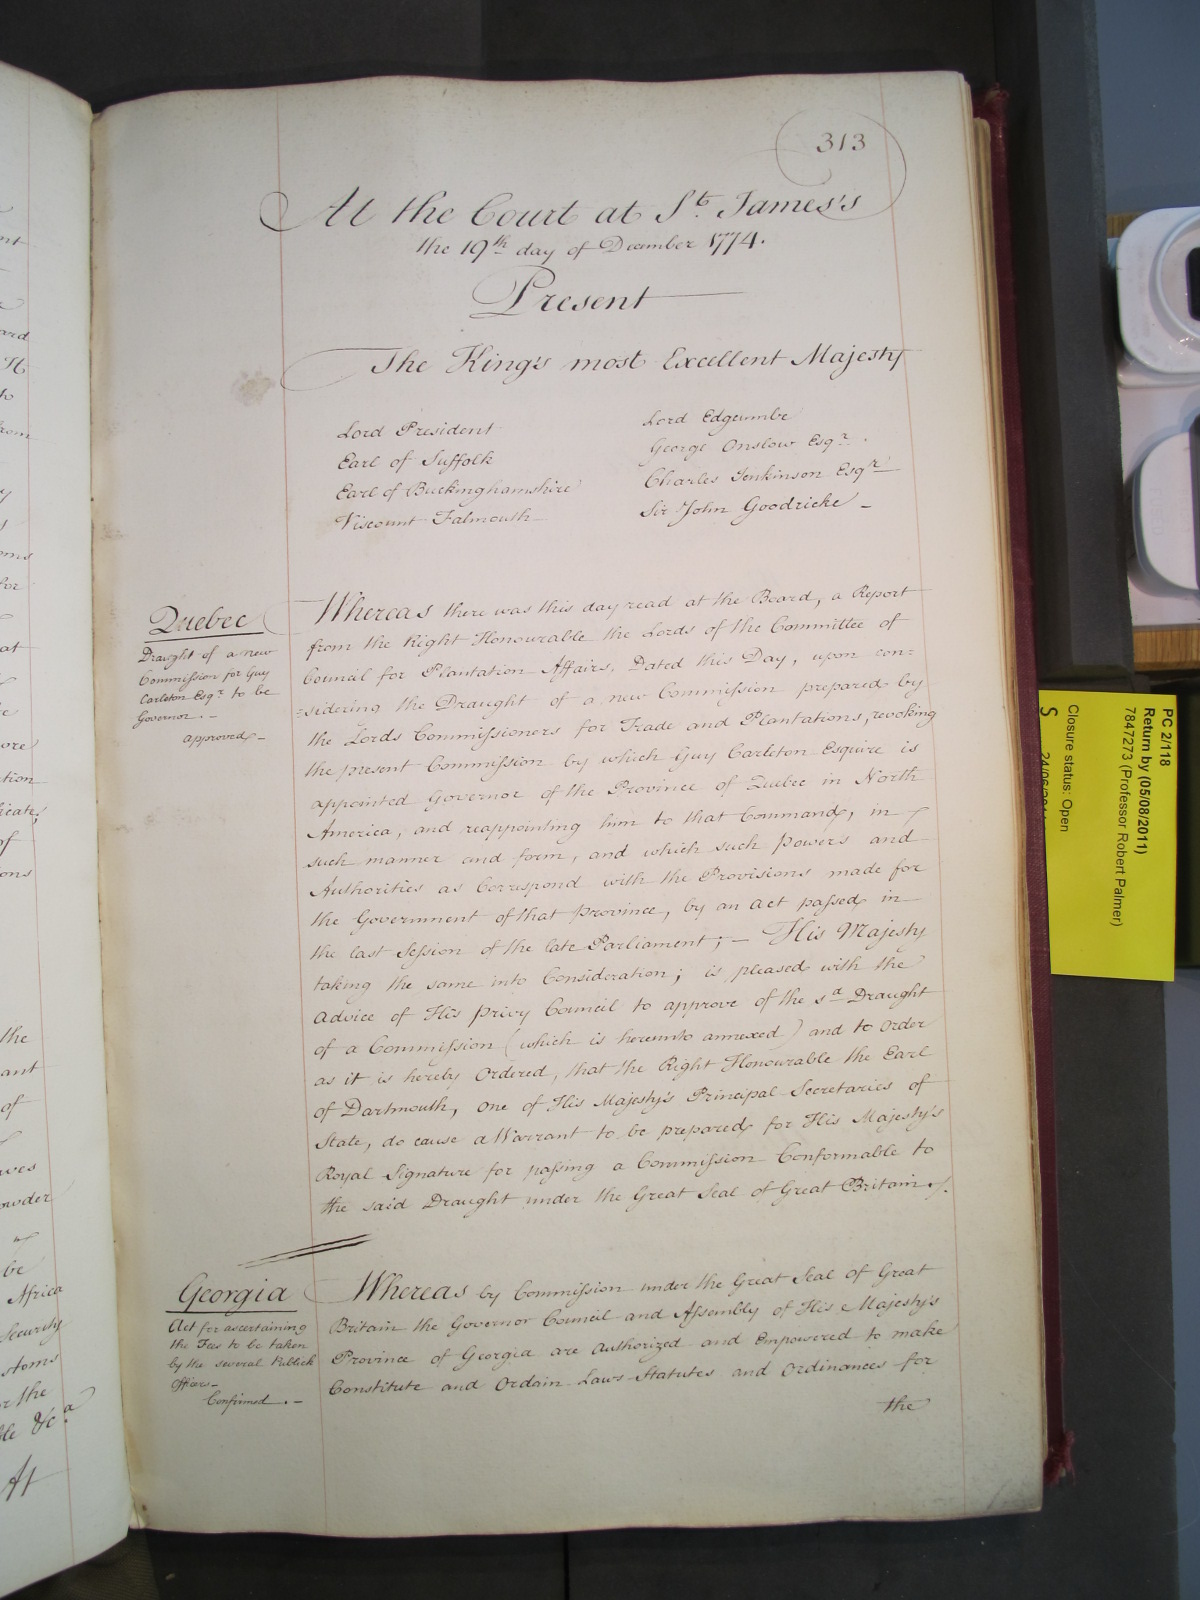 313
At the Court at St. James's
the 19th day of December 1774.
Present
The King's most Excellent Majesty
Lord President
Earl of Suffolk
Earl of Buckinghamshire
Viscount Falmouth
Lord Edgcumbe
George Onslow Esqr.
Charles Jenkinson Esqr.
Sir John Goodricke
Quebec
Draught of a new
Commission for Guy
Carleton Esqr. to be
Governor. —
approved —
Whereas there was this day read at the Board, a Report
from the Right Honourable the Lords of the Committee of
Council for Plantation Affairs, Dated this Day, upon con=
=sidering the Draught of a new Commission prepared by
the Lords Commissioners for Trade and Plantations, revoking
the present Commission by which Guy Carleton Esquire is
appointed Governor of the Province of Quebec in North
America, and reappointing him to that Command, in
such manner and form, and which such Powers and
Authorities as Correspond with the Provisions made for
the Government of that province, by an act passed in
the last Session of the late Parliament; — His Majesty
taking the same into Consideration; is pleased with the
advice of His privy Council to approve of the sd. Draught
of a Commission (which is hereunto annexed) and to order
as it is hereby Ordered, that the Right Honourable the Earl
of Dartmouth, one of His Majesty's Principal Secretaries of
State, do cause a Warrant to be prepared for His Majesty's
Royal Signature for passing a Commission Conformable to
the said Draught under the Great Seal of Great Britain
Georgia
Act for ascertaining
the Fees to be taken
by the several Publick
Officers —
Confirmed . —
Whereas by Commission under the Great Seal of Great
Britain the Governor Council and Assembly of His Majesty's
Province of Georgia are Authorized and Empowered to make
Constitute and Ordain Laws Statutes and Ordinances for
the
PC 2/118
Return by (05/08/2011)
7847273 (Professor Robert Palmer)
Closure status: Open
S
ard
from
for
at
ore
tion
of
ons
the
ant
of
owder
be
Africa
Security
stoms
the
&ca
At